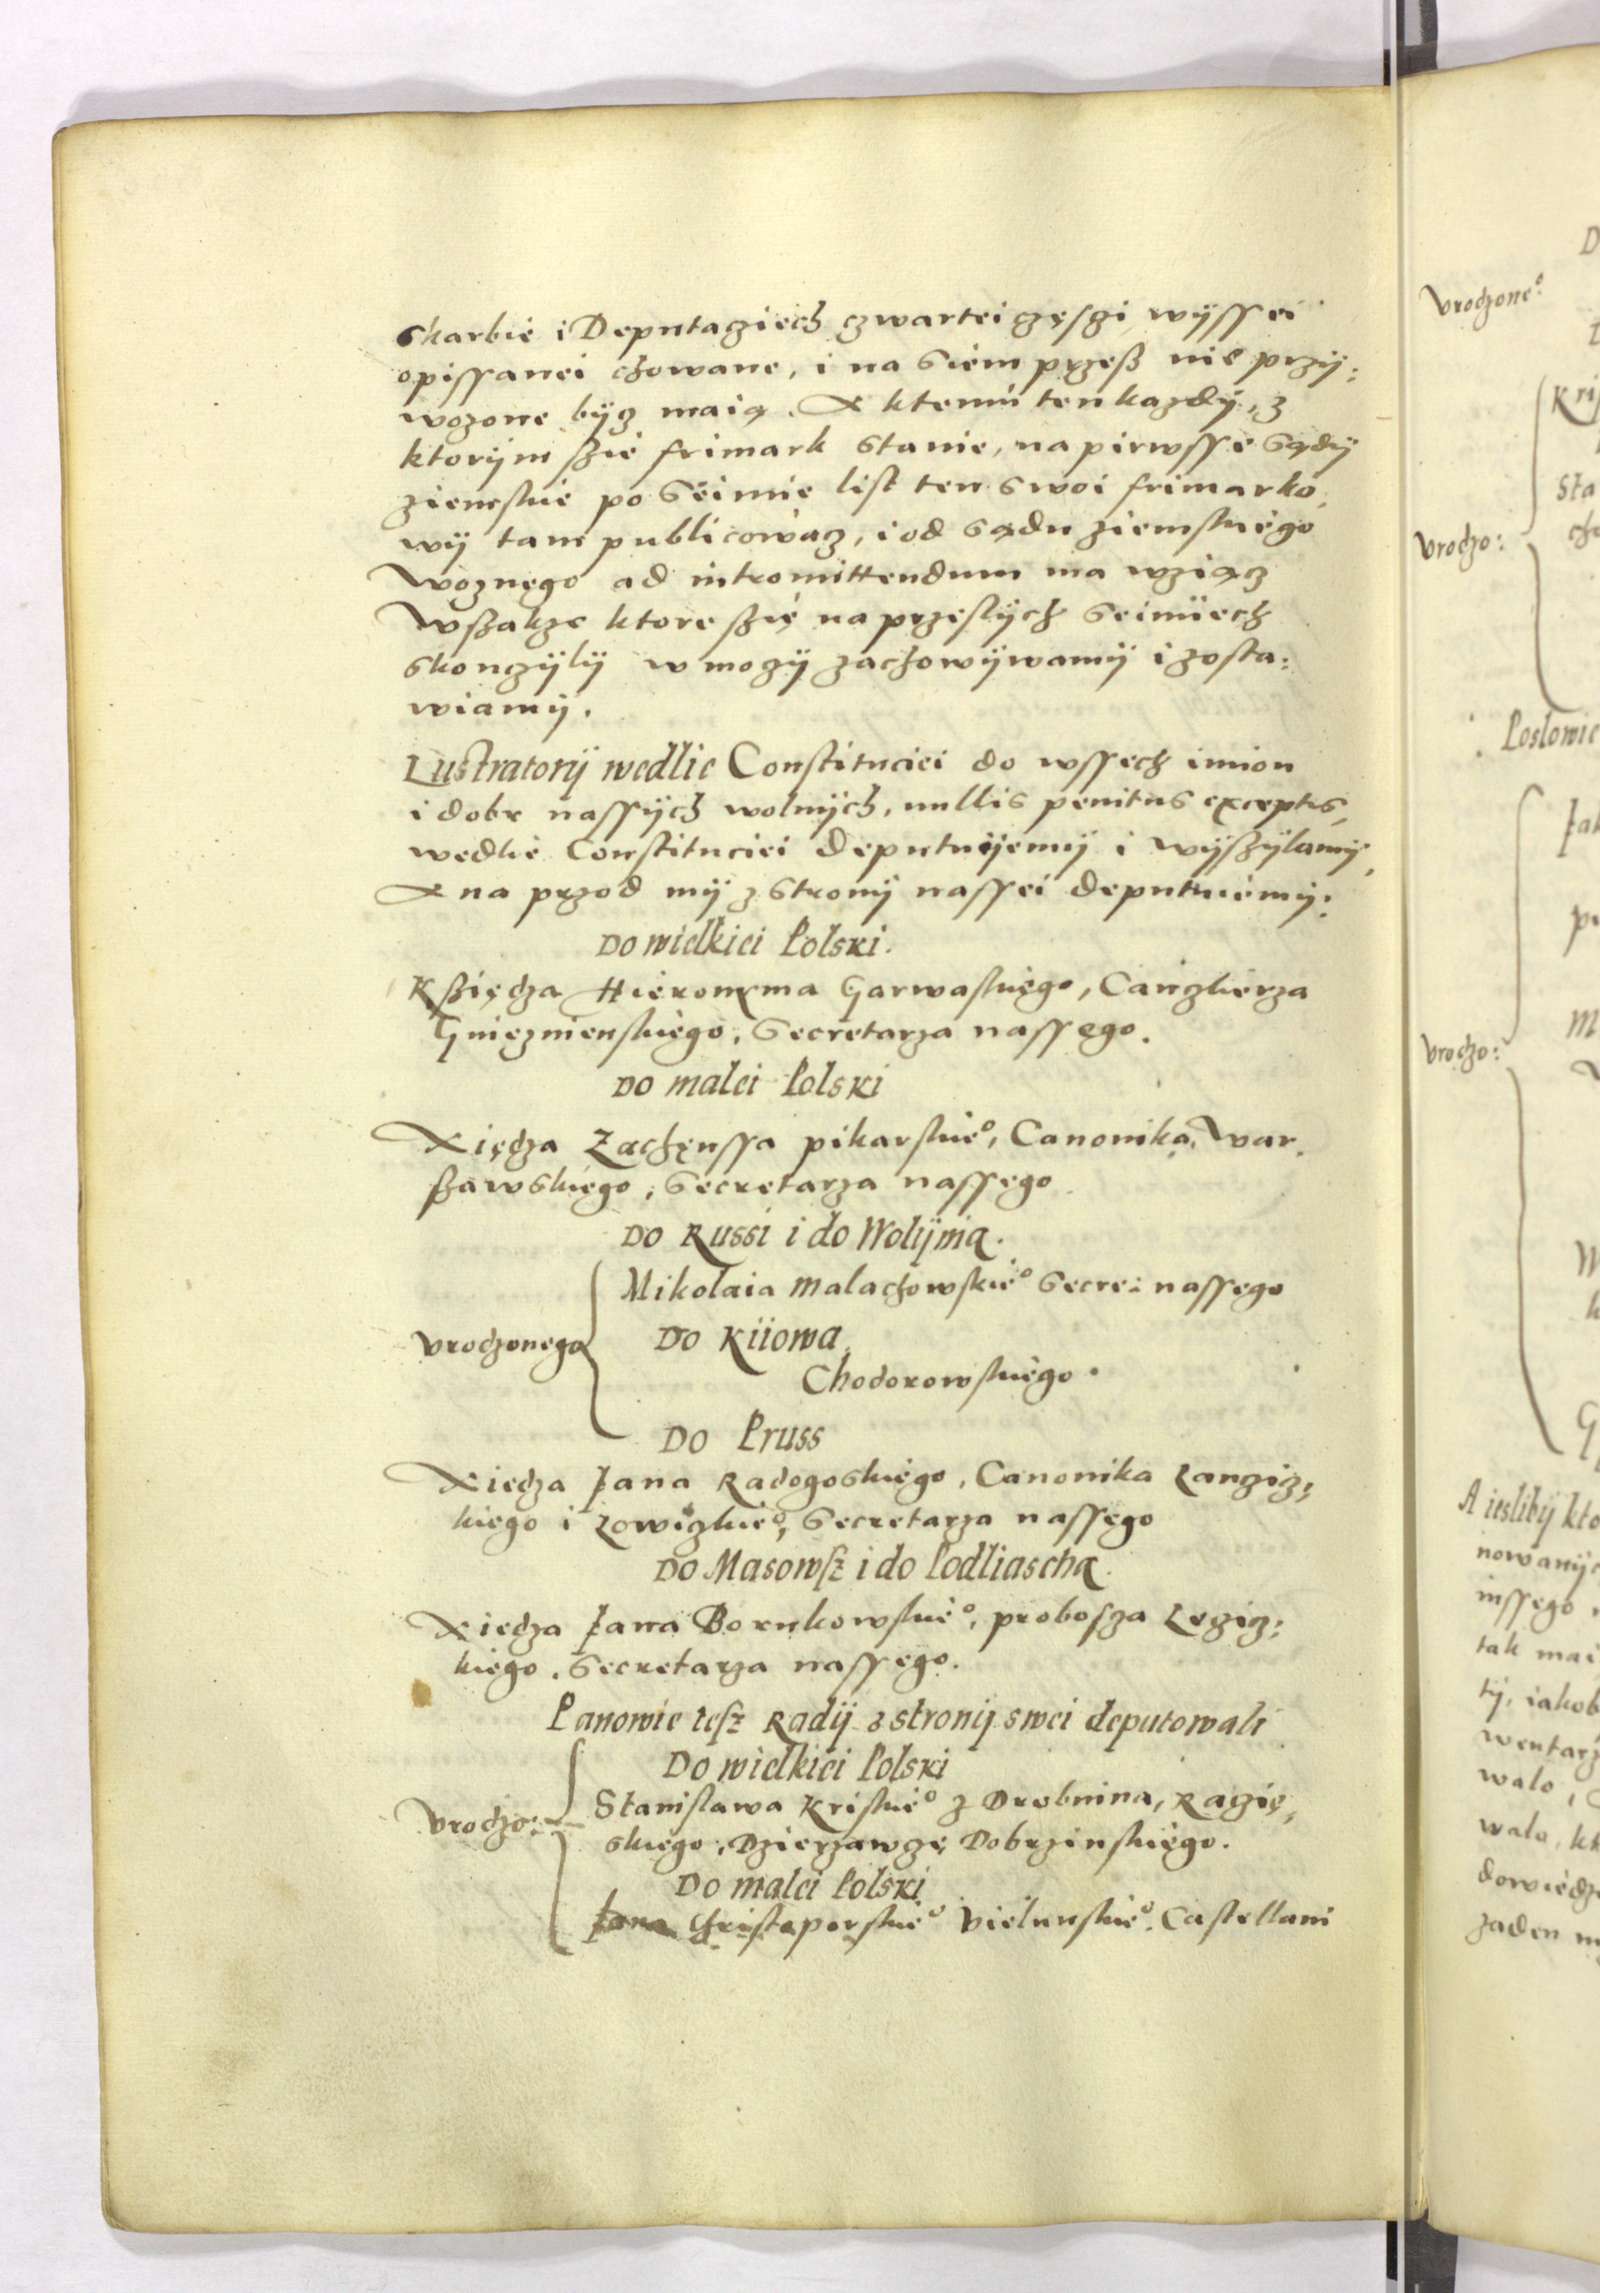 skarbie i Deputaciech czwartei częsci wÿssei
opissanei chowane, i na Seim przeß nie przÿ:
wozone bÿcz maią. A ktemu ten kazdÿ, z
ktorÿm ßie frimark stanie, na pirwsse Sądÿ
ziemskie po Seimie list ten swoi frimarko,
wÿ tam publicowacz, i od Sądu ziemskiego
woznego ad intromittendum ma wziącz
Wßakze ktore ßię na przeslÿch Seimiech
skonczÿlÿ w moczÿ zachowÿwamÿ i zosta:
wiamÿ.
Lustratorÿ wedlie Constituciei do wssech imion
i dobr nassÿch wolnÿch, nullis penitus exceptis,
wedlie Constituciei deputuÿemÿ i wÿßÿlamÿ,
A na przod mÿ z stronÿ nassei deputuiemÿ:
Do wielkiei Polski.
Kßiędza Hieronyma Garwaskiego, Canzlierza
Gnieznienskiego, Secretarza nassego.
Do malei Polski
Xiędza Zachęussa pikarskieº, Canonika War,
ßawskiego, Secretarza nassego
Do Russi i do Wolÿnią.
Mikolaia Malachowskieº Secre: nassego
Vrodzonego
Do Kiiowa
Chodorowskiego.
Do Pruss
Xiedza Jana Radogoskiego, Canonika Lanczicz,
kiego i Lowiczkieº, Secretarza nassego
Do Masowsz i do Podliascha
Xiedza Jana Bornkowskieº, probosza Lęczicz:
kiego, Secretarza nassego.
Panowie tesz Radÿ z stronÿ swei deputowali
Do wielkiei Polski
Vrodzo:
Stanislawa Kriskieº z Drobnina, Racię,
skiego, Dzierzawcze Dobrzinskiego.
Do malei Polski
Jana Christoporskieº Vielunskieº Castellani
D
Vrodzoneº
Kri
Sta
Vrodzo:
Poslowie
Jak
Vrodzo:
M
W
G
A ieslibÿ kto
nowanÿc
inssego
tak mai
tÿ, iakob
wentarz
walo,
walo, kt
dowiedz
zaden